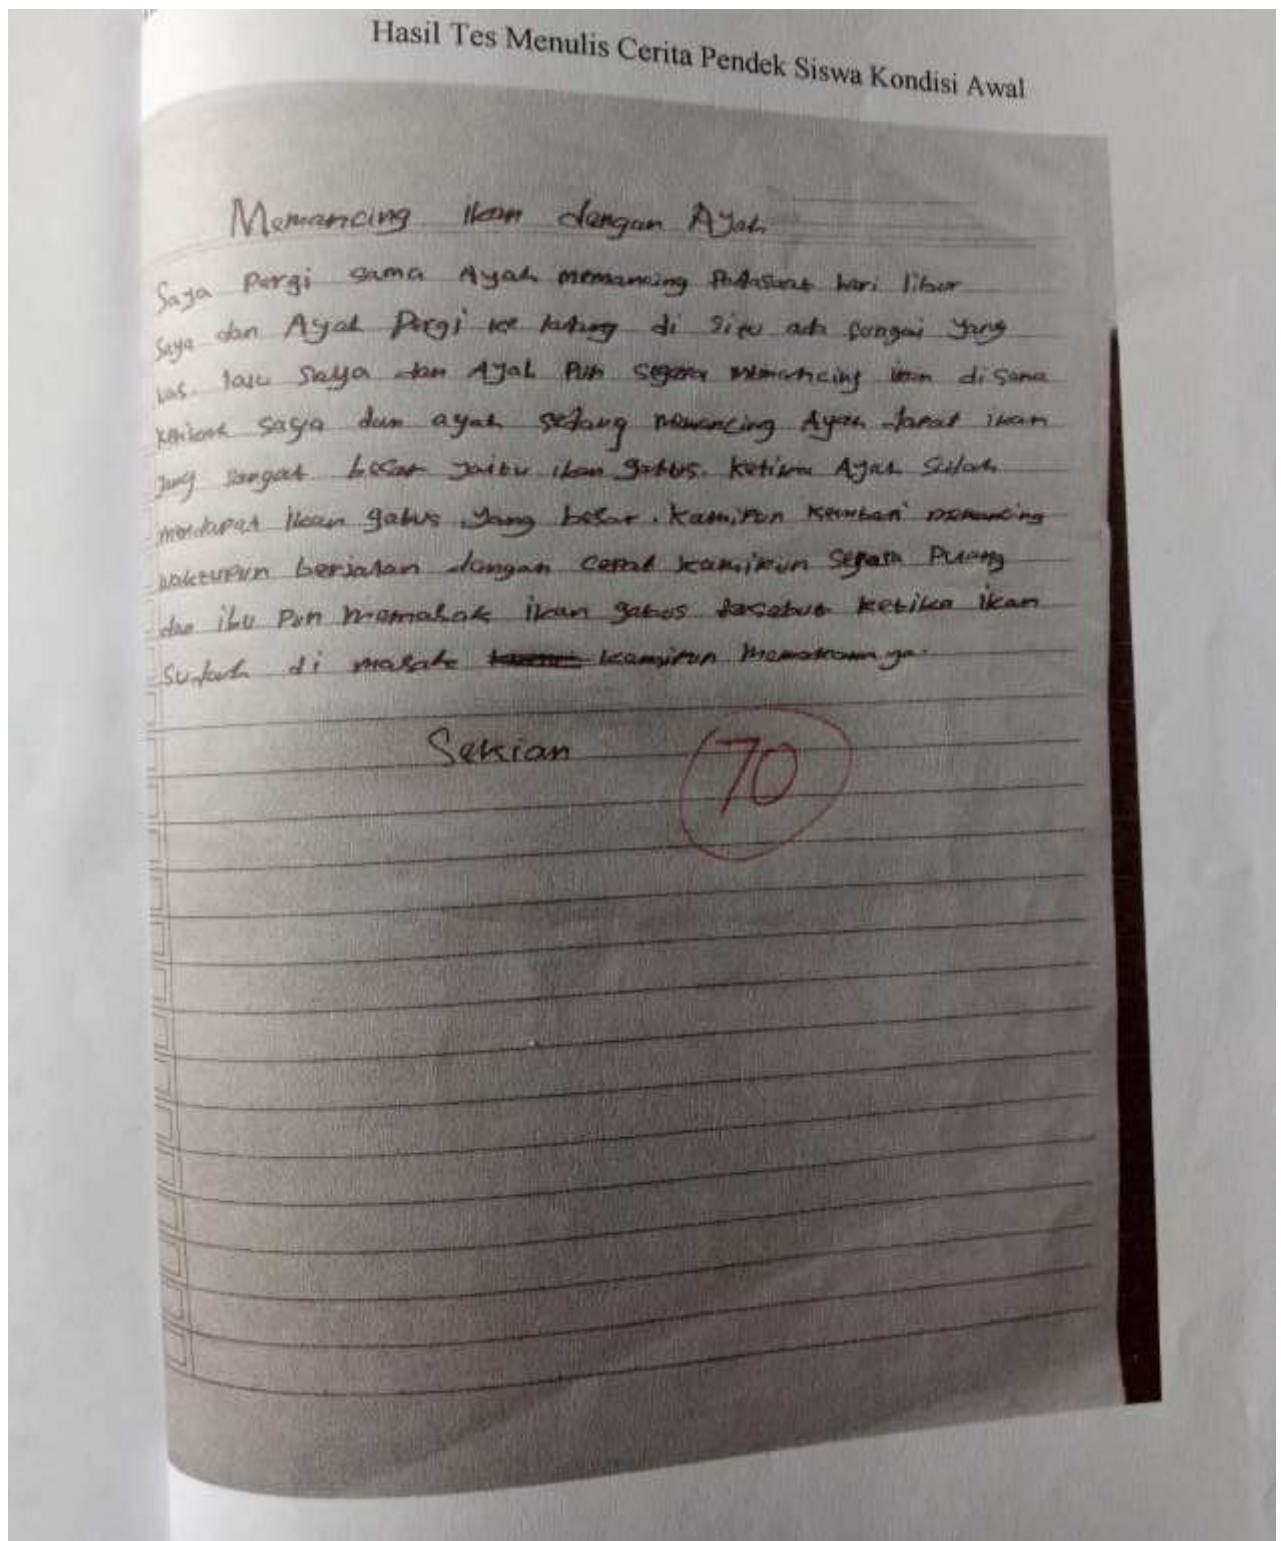 Hasil Tes Menulis Cerita Pendek Siswa Kondisi Awal
Memancing ikan dengan Ayah
Saya Pergi sama Ayah memancing Padasaat hari libur
Saya dan Ayah Pergi ke di situ ada sungai yang
lalu Saya dan Ayah Pun segera memancing ikan disana
saya dan ayah sedang memancing Ayah dapat ikan
yang sangat besar yaitu ikan gabus. ketika Ayah Sudah
mendapat ikan gabus yang besar. kamipun kembali memancing
waktupun berjalan dengan cepat kamipun segera Pulang
dan ibu Pun memasak ikan gabus tersebut ketika ikan
sudah di masak kamipun memakannya.
Sekian
70